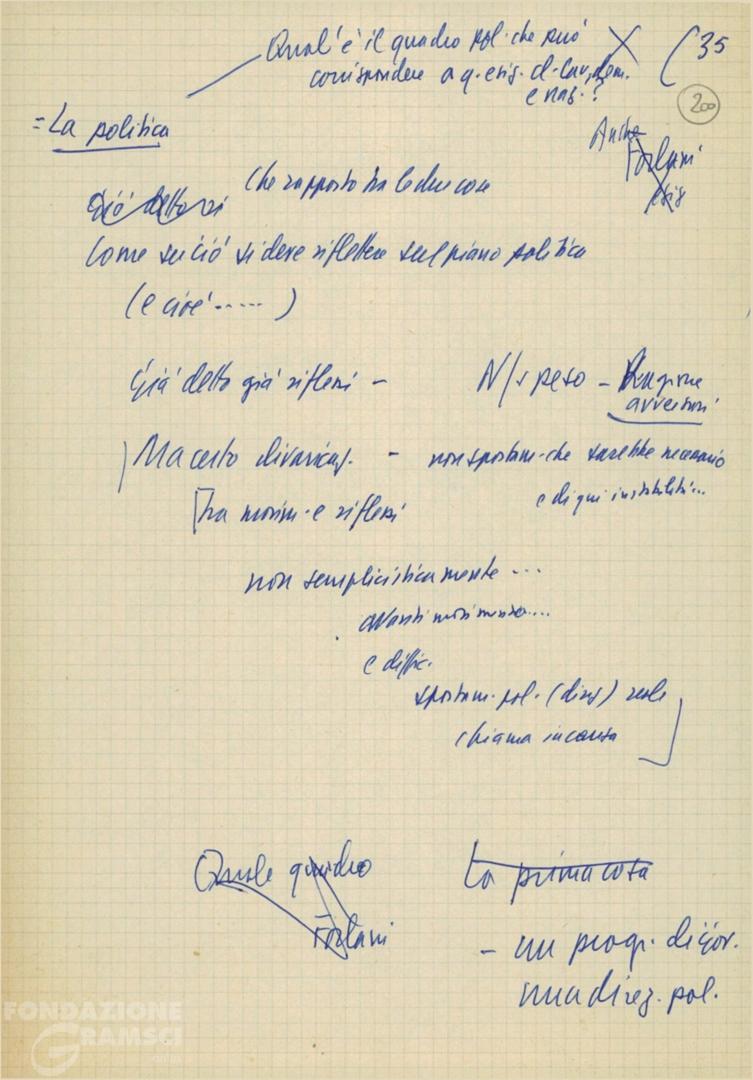 Qual'è il quadro pol. che può
corrispondere a q. esig. d. lav., dem.
e naz.?
(35
200
= La politica
Anche
Forlani
esig
Già detto
Che rapporto tra le due cose
Come su ciò si deve riflettere sul piano politico
(e cioè.....)
Già detto già riflessi - N/s peso - Reazione
avversari
Ma certo divaricaz. - non spostam. che sarebbe necessario
e di qui instabilità...
Tra movim. e riflessi
non semplicisticamente...
avanti movimento....
e diffic.
spostam. pol. (direz) reale
chiama in causa
Quale quadro
Forlani
La prima cosa
- un progr. di gov.
una direz. pol.
FONDAZIONE
GRAMSCI